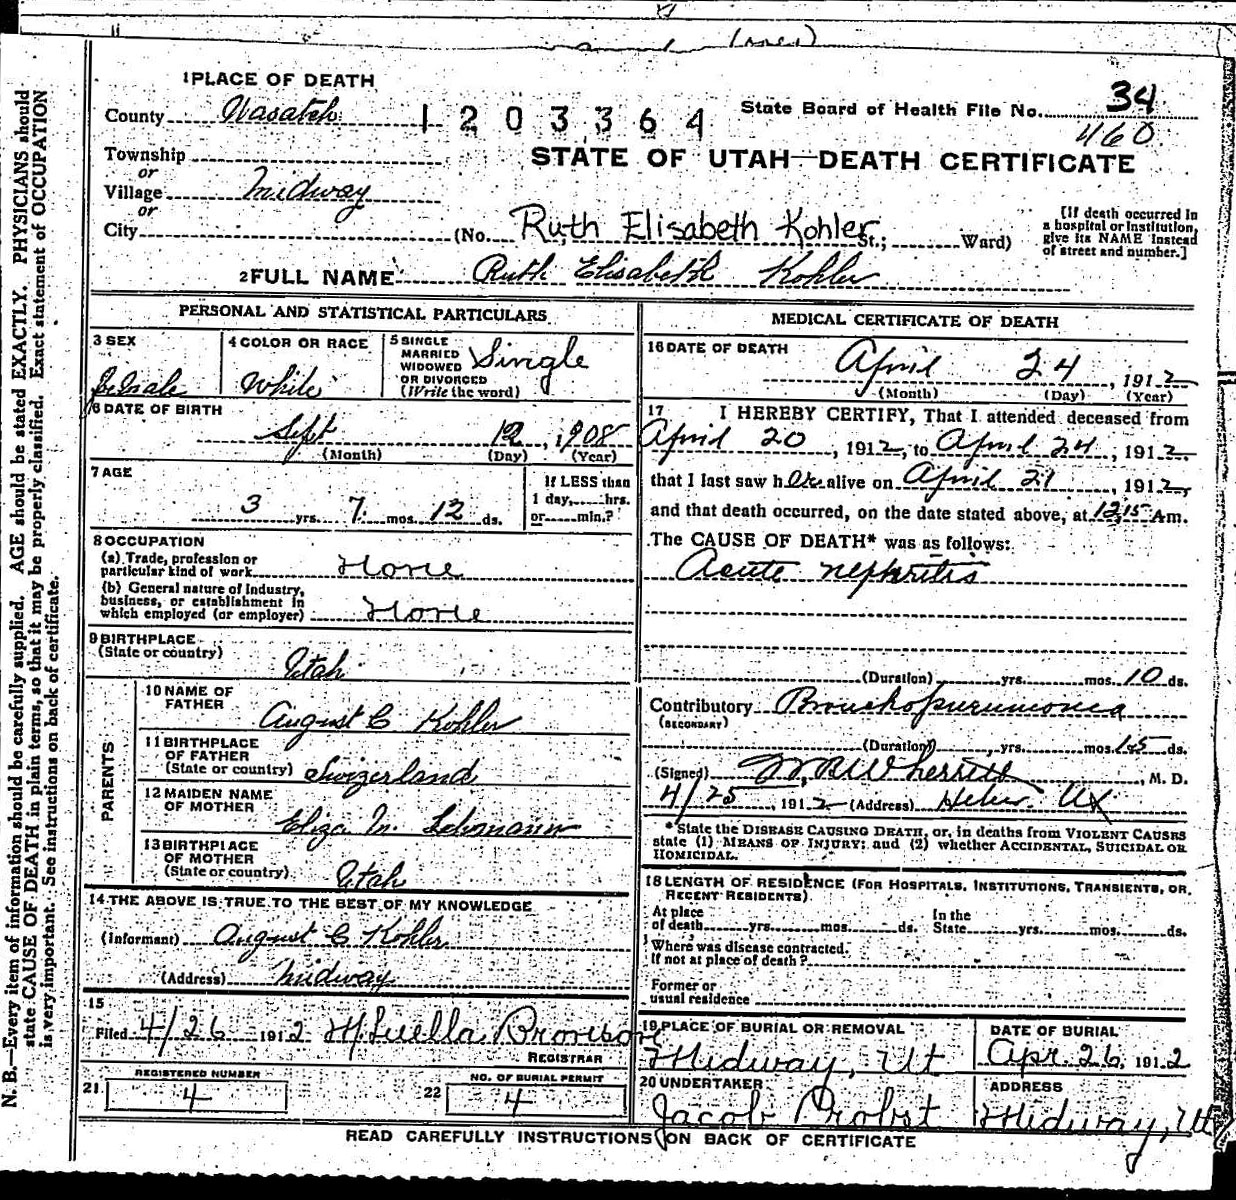 1 PLACE OF DEATH
County Wasatch
1203364
State Board of Health File No. 34
460
Township
or
Village Midway
or
City
STATE OF UTAH—DEATH CERTIFICATE
(No. Ruth Elisabeth Kohler St.; Ward)
[If death occurred in a hospital or institution, give its NAME instead of street and number.]
2 FULL NAME Ruth Elisabeth Kohler
PERSONAL AND STATISTICAL PARTICULARS
3 SEX female
4 COLOR OR RACE White
5 SINGLE MARRIED WIDOWED OR DIVORCED (Write the word) Single
6 DATE OF BIRTH
Sept 12, 1908
(Month) (Day) (Year)
7 AGE
3 yrs. 7 mos. 12 ds.
If LESS than 1 day, hrs. or min.?
8 OCCUPATION
(a) Trade, profession or particular kind of work None
(b) General nature of Industry, business, or establishment in which employed (or employer) None
9 BIRTHPLACE
(State or country) Utah
PARENTS
10 NAME OF FATHER August C Kohler
11 BIRTHPLACE OF FATHER (State or country) Swizerland
12 MAIDEN NAME OF MOTHER Eliza M. Lehmann
13 BIRTHPLACE OF MOTHER (State or country) Utah
14 THE ABOVE IS TRUE TO THE BEST OF MY KNOWLEDGE
(Informant) August C Kohler
(Address) Midway
15
Filed 4/26 1912 Luella Bronson
REGISTRAR
21 REGISTERED NUMBER 4
22 NO. OF BURIAL PERMIT 4
MEDICAL CERTIFICATE OF DEATH
16 DATE OF DEATH
April 24, 1912
(Month) (Day) (Year)
17 I HEREBY CERTIFY, That I attended deceased from
April 20, 1912, to April 24, 1912.
that I last saw her alive on April 21, 1912,
and that death occurred, on the date stated above, at 12,15 Am.
The CAUSE OF DEATH* was as follows:
Acute nephritis
(Duration) yrs. mos. 10 ds.
Contributory Bronchopneumonia
(SECONDARY)
(Duration) yrs. mos. 15 ds.
(Signed) Wherritt, M. D.
4/25, 1912 (Address) Heber Ut
*State the DISEASE CAUSING DEATH, or, in deaths from VIOLENT CAUSES
state (1) MEANS OF INJURY; and (2) whether ACCIDENTAL, SUICIDAL OR
HOMICIDAL.
18 LENGTH OF RESIDENCE (FOR HOSPITALS, INSTITUTIONS, TRANSIENTS, OR RECENT RESIDENTS).
At place of death yrs. mos. ds. In the State yrs. mos. ds.
Where was disease contracted. If not at place of death?
Former or usual residence
19 PLACE OF BURIAL OR REMOVAL Midway, Ut
DATE OF BURIAL Apr. 26, 1912
20 UNDERTAKER Jacob Probst
ADDRESS Midway, Ut
READ CAREFULLY INSTRUCTIONS ON BACK OF CERTIFICATE
N. B.—Every item of information should be carefully supplied. AGE should be stated EXACTLY. PHYSICIANS should
state CAUSE OF DEATH in plain terms, so that it may be properly classified. Exact statement of OCCUPATION
is very important. See instructions on back of certificate.